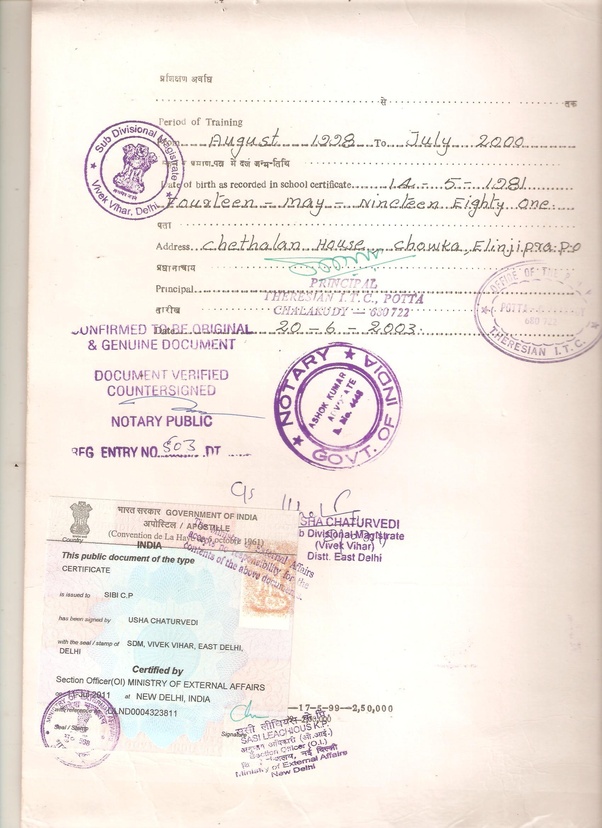 प्रशिक्षण अवधि
से तक
Period of Training
August 1998 To July 2000
में दर्ज जन्म-तिथि
Date of birth as recorded in school certificate 14 - 5 - 1981
Fourteen - May - Nineteen Eighty One
पता
Address Chethalan House, Chowka, Elinjipra. P.O
प्रधानाचार्य
Principal
PRINCIPAL
THERESIAN I.T.C., POTTA
CHALAKUDY — 680 722
तारीख
Date 20 - 6 - 2003.
Sub Divisional Magistrate
Vivek Vihar, Delhi
OFFICE OF THE
POTTA
680 722
THERESIAN I. T. C.
CONFIRMED TO BE ORIGINAL
& GENUINE DOCUMENT
DOCUMENT VERIFIED
COUNTERSIGNED
NOTARY PUBLIC
REG ENTRY NO. 503 .DT
NOTARY
GOVT. OF INDIA
ASHOK KUMAR
ADVOCATE
USHA CHATURVEDI
Sub Divisional Magistrate
(Vivek Vihar)
Distt. East Delhi
भारत सरकार GOVERNMENT OF INDIA
अपोस्टिल / APOSTILLE
(Convention de La Haye du 5 octobre 1961)
Country INDIA
This public document of the type
CERTIFICATE
is issued to SIBI C.P
has been signed by USHA CHATURVEDI
with the seal / stamp of SDM, VIVEK VIHAR, EAST DELHI,
DELHI
Certified by
Section Officer(OI) MINISTRY OF EXTERNAL AFFAIRS
Jul 2011 at NEW DELHI, INDIA
DLND0004323811
Seal / Stamp
Signature
External Affairs
responsibility for the
contents of the above document
—17-5-99—2,50,000
SASI LEACHIOUS K.P.
Section Officer (O.I.)
Ministry of External Affairs
New Delhi